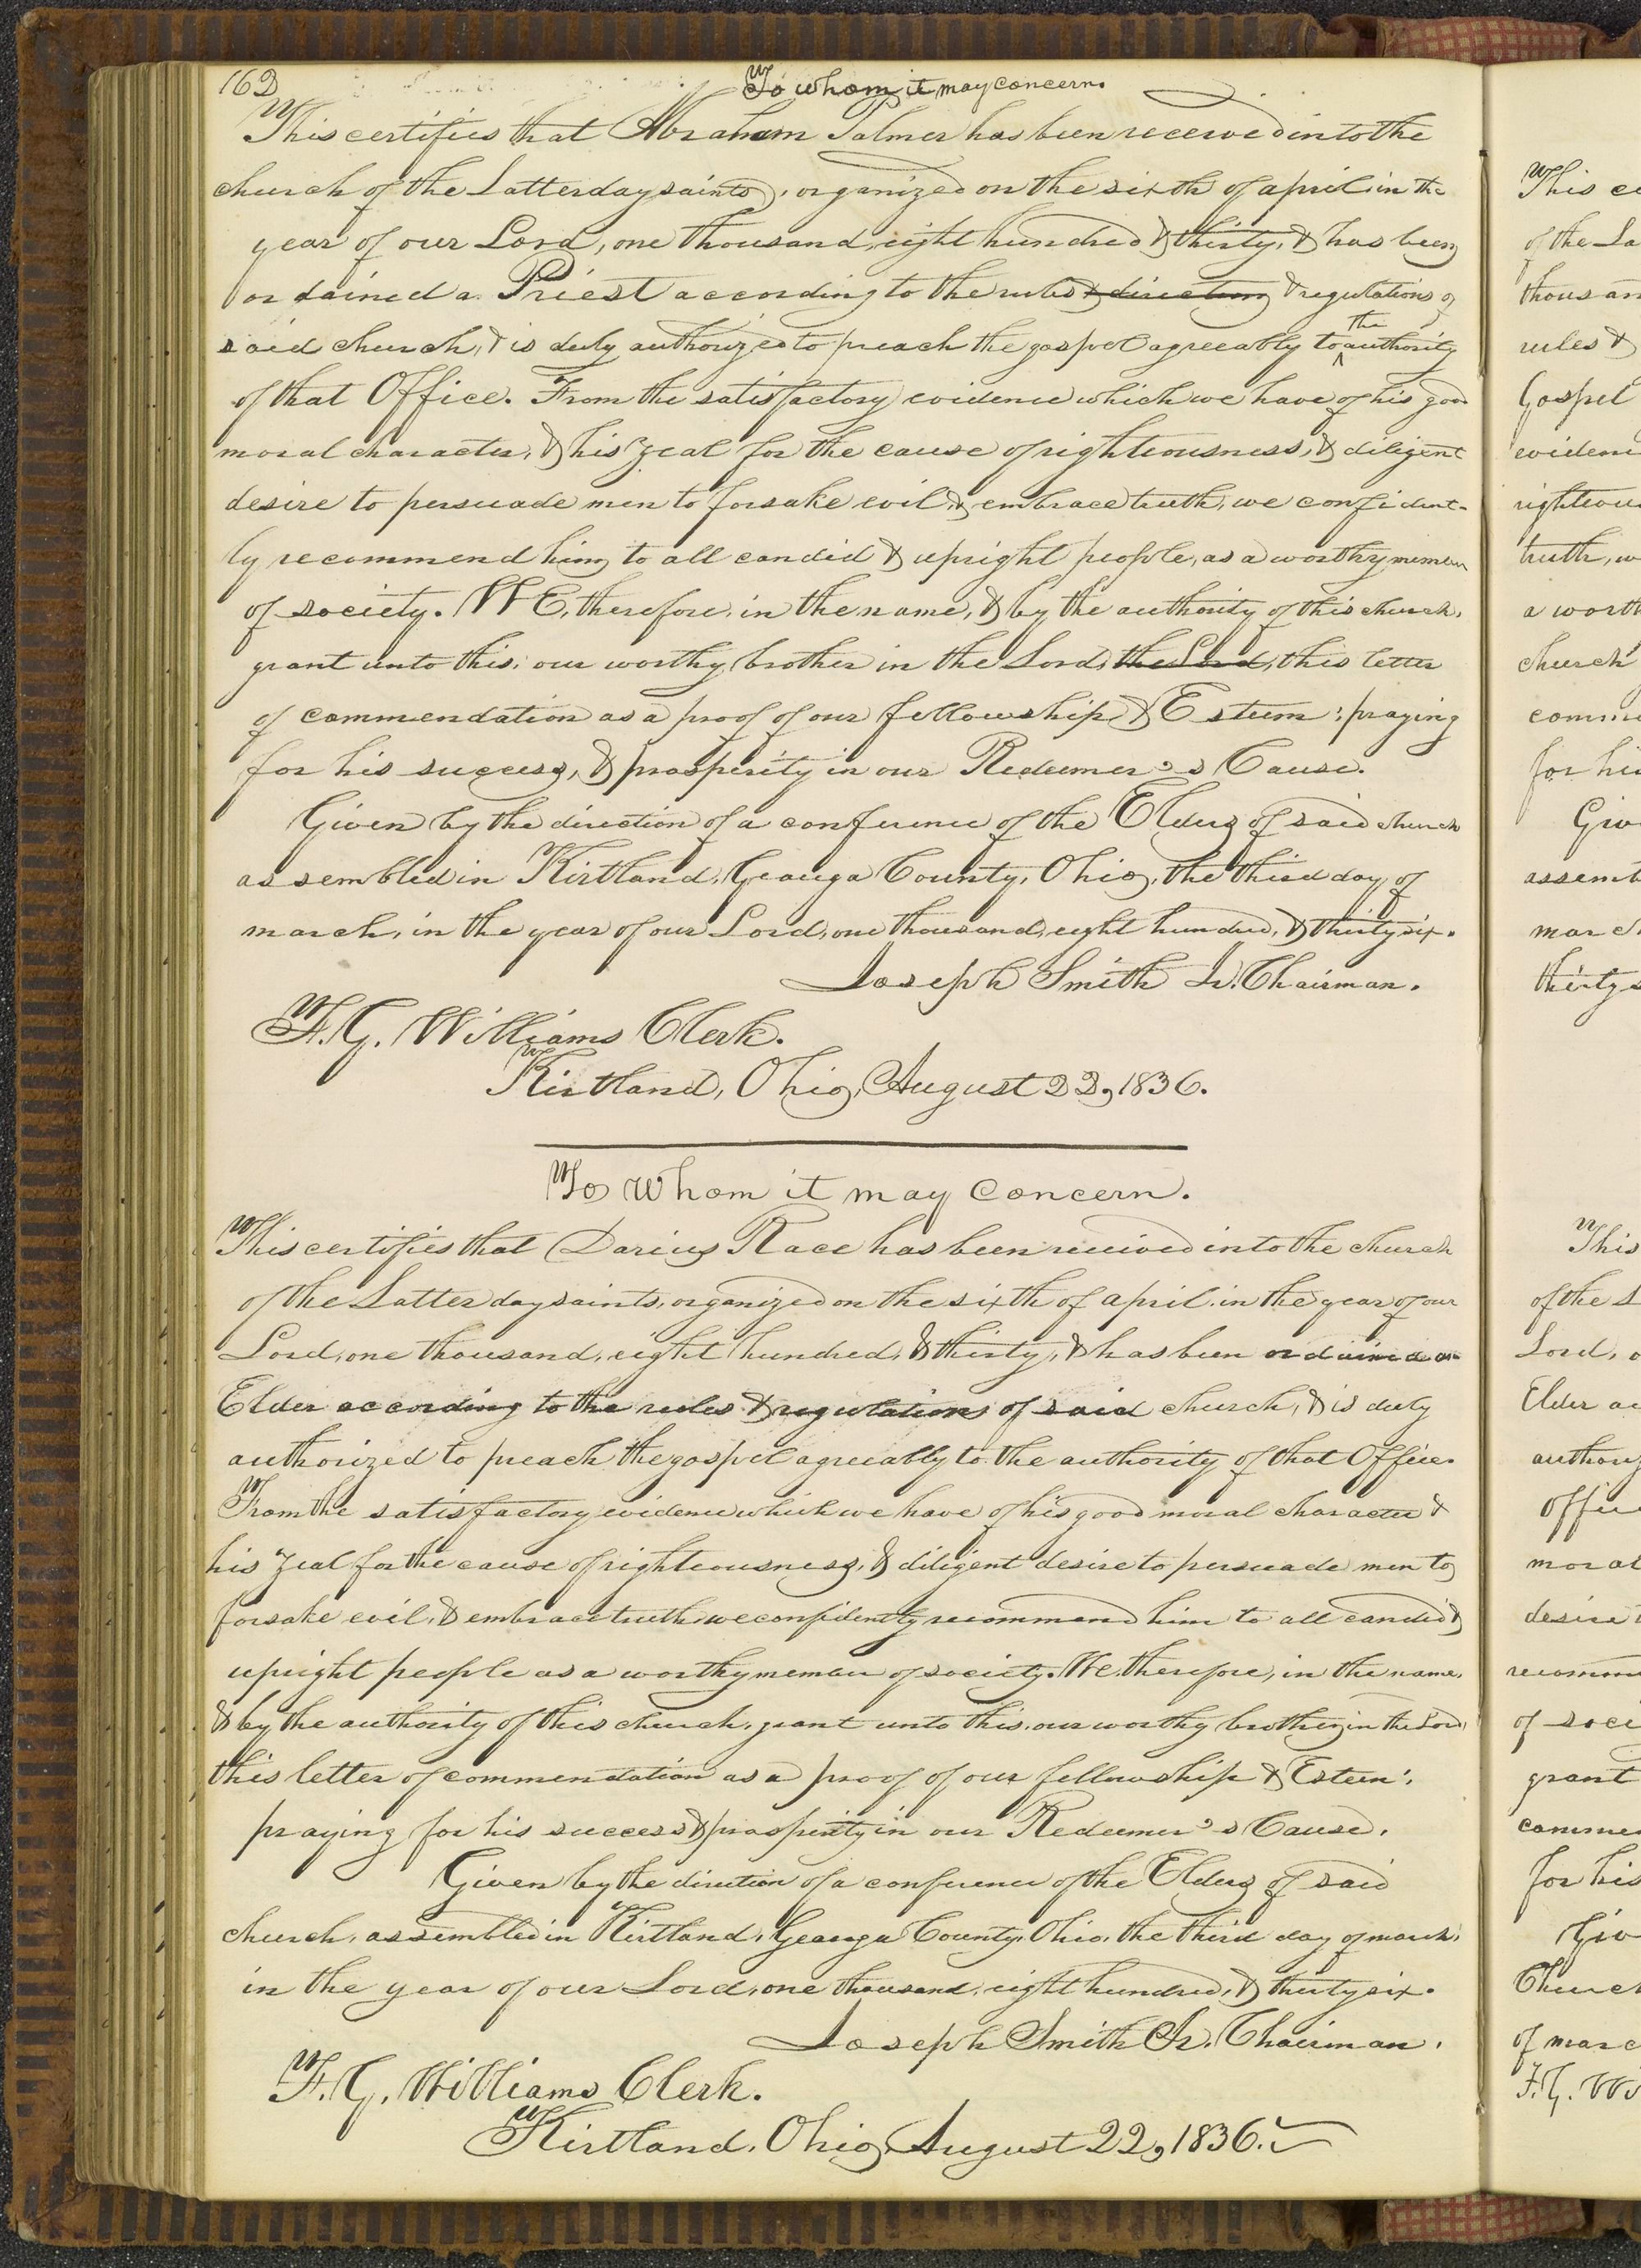 162
To whom it may concern.
This certifies that Abraham Palmer has been received into the
church of the Latterday saints, organized on the sixth of april in the
year of our Lord, one thousand, eight hundred & thirty, & has been
ordained a Priest according to the rules & direction & regulations of
said church, & is duly authorized to preach the gospel agreeably to the authority
of that Office. From the satisfactory evidence which we have of his good
moral character, & his zeal for the cause of righteousness, & diligent
desire to persuade men to forsake evil, & embrace truth, we confident-
ly recommend him to all candid & upright people, as a worthy memeber
of society. WE, therefore, in the name, & by the authority of this church,
grant unto this, our worthy brother in the Lord, the Lord, this letter
of commendation as a proof of our fellowship & Esteem: praying
for his success, & prosperity in our Redeemer's Cause.
Given by the direction of a conference of the Elders of said church
assembled in Kirtland, Geauga County, Ohio, the third day of
march, in the year of our Lord, one thousand, eight hundred, & thirty six.
Joseph Smith Jr. Chairman.
F. G. Williams Clerk.
Kirtland, Ohio, August 22, 1836.
To Whom it may Concern.
This certifies that Darius Race has been received into the church
of the Latter day saints, organized on the sixth of april, in the year of our
Lord, one thousand, eight hundred, & thirty, & has been ordained an
Elder according to the rules & regulations of said church, & is duly
authorized to preach the gospel agreeably to the authority of that Office.
From the satisfactory evidence which we have of his good moral character &
his zeal for the cause of righteousness, & diligent desire to persuade men to
forsake evil, & embrace truth, we confidently recommend him to all candid &
upright people as a worthy memeber of society. We, therefore, in the name,
& by the authority of this church, grant unto this, our worthy brother, in the Lord,
this letter of commendation as a proof of our fellowship & Esteem:
praying for his success & prosperity in our Redeemer's Cause.
Given by the direction of a conference of the Elders of said
church, assembled in Kirtland, Geauga County, Ohio, the third day of march,
in the year of our Lord, one thousand, eight hundred, & thirty six.
Joseph Smith Jr. Chairman.
F. G. Williams Clerk.
Kirtland, Ohio, August 22, 1836.
This ce
of the La
thousan
rules &
Gospel
evidenc
righteou
truth, w
a worth
church
comme
for his
Giv
assemb
march
thirty s
This
of the L
Lord, o
Elder ac
authori
Office
moral
desire
recomm
of soci
grant
comme
for his
Giv
Church
of marc
F. G. Wi